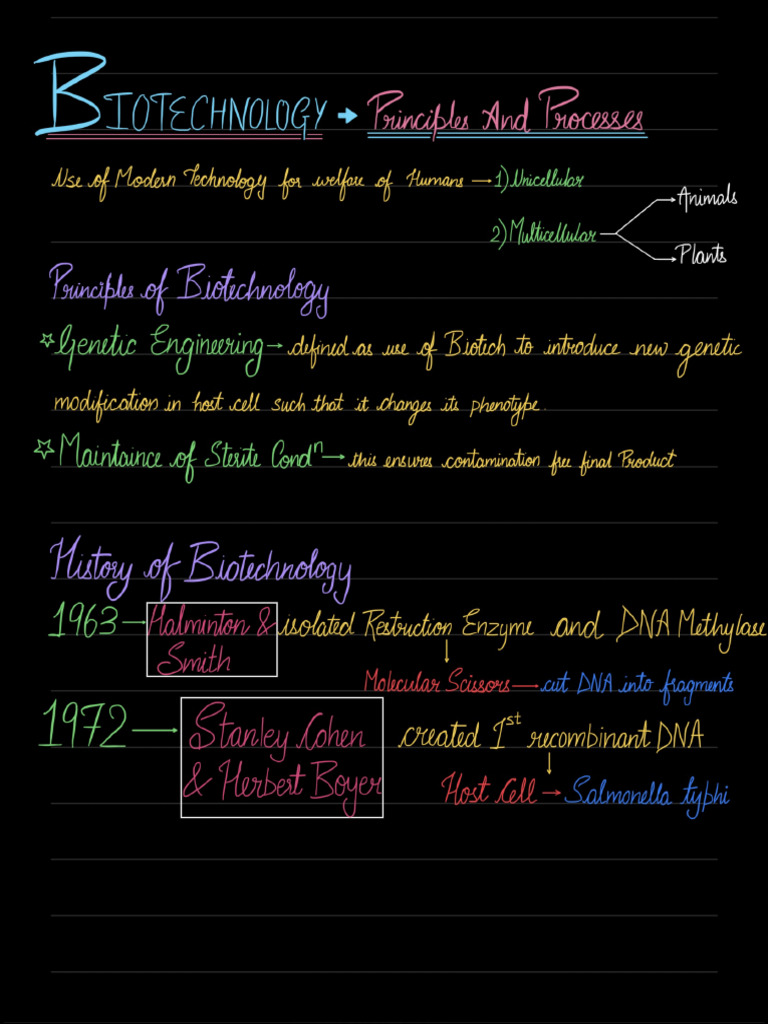 BIOTECHNOLOGY → Principles And Processes
Use of Modern Technology for welfare of Humans → 1) Unicellular
Animals
2) Multicellular
Plants
Principles of Biotechnology
☆ Genetic Engineering → defined as use of Biotech to introduce new genetic
modification in host cell such that it changes its phenotype.
☆ Maintaince of Sterite Condⁿ → this ensures contamination free final Product
History of Biotechnology
1963 → Halminton & isolated Restruction Enzyme and DNA Methylase
Smith
Molecular Scissors → cut DNA into fragments
1972 → Stanley Cohen created 1st recombinant DNA
& Herbert Boyer
Host Cell → Salmonella typhi